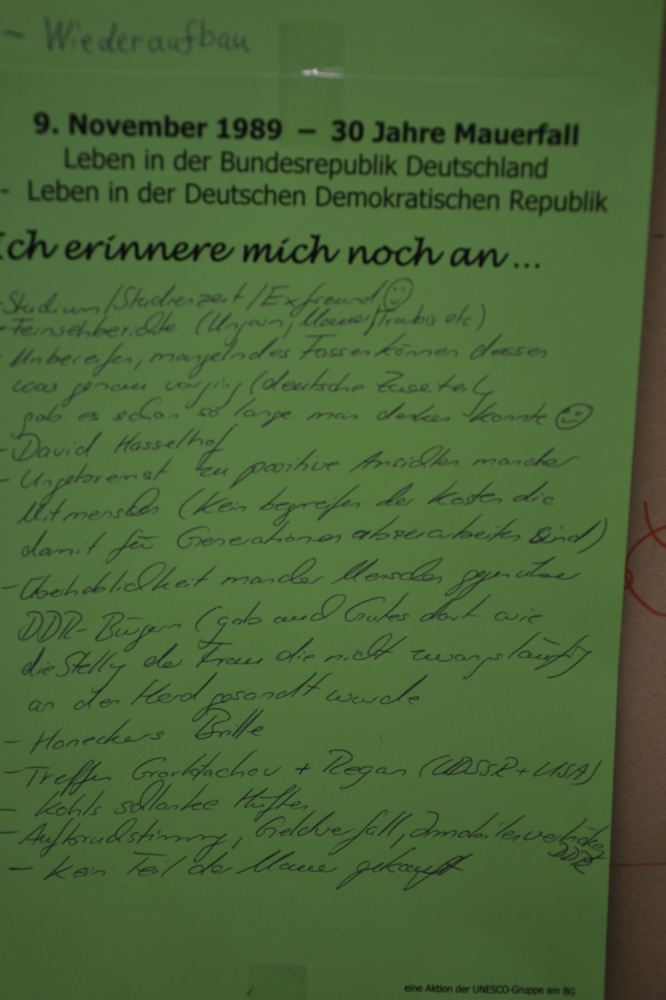 - Wiederaufbau
9. November 1989 – 30 Jahre Mauerfall
Leben in der Bundesrepublik Deutschland
- Leben in der Deutschen Demokratischen Republik
Ich erinnere mich noch an ...
- Studium/Studienzeit/Exfreund ☺
- Fernsehberichte (Ungarn, Mauer, Trabis etc)
- Unbegreifen, mangelndes Fassenkönnen dessen
was genau vorging (deutsche Zweiteilg
gab es schon so lange man denken konnte ☺
- David Hasselhof
- Ungebremst zu positive Ansichten mancher
Mitmenschen (Kein begreifen der Kosten die
damit für Generationen abzuarbeiten sind)
- Überheblichkeit mancher Menschen gegenüber
DDR-Bürgern (gab auch Gutes dort wie
die Stellg der Frau die nicht zwangsläufig
an den Herd gesandt wurde
- Honeckers Brille
- Treffen Gorbatschov + Regan (UDSSR + USA)
- Kohls schlanke Hüften
- Aufbruchstimmung, Geldverfall, Immobilienverkäufe
DDR
- Kein Teil der Mauer gekauft
eine Aktion der UNESCO-Gruppe am BG